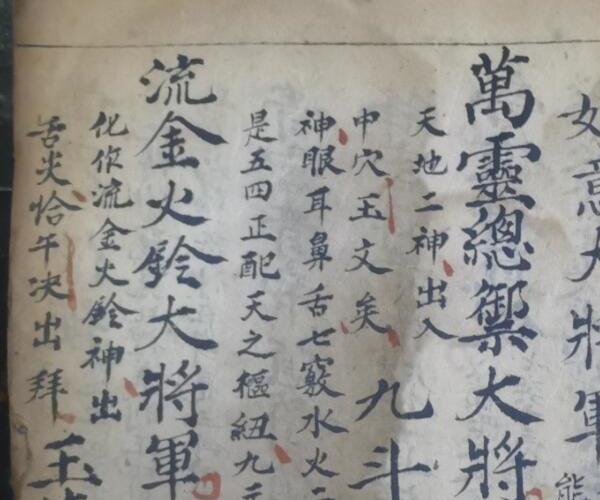 如意大將軍
萬靈總禦大將
天地二神出入
中穴玉文矣 九斗
神眼耳鼻舌七竅水火二
是五四正配天之樞紐九
流金火鈴大將軍
化作流金火鈴神出
舌尖恰午决出拜 王